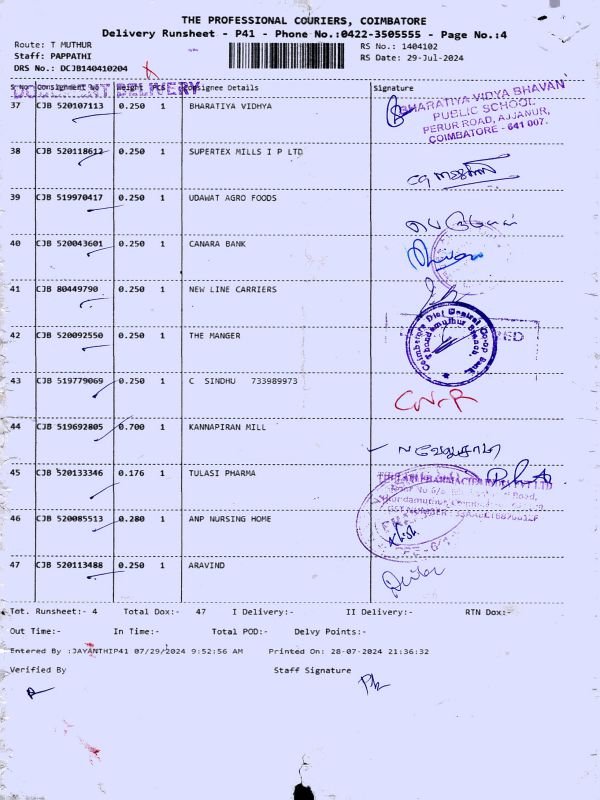 THE PROFESSIONAL COURIERS, COIMBATORE
Delivery Runsheet - P41 - Phone No.:0422-3505555 - Page No.:4
Route: T MUTHUR
RS No.: 1404102
Staff: PAPPATHI
RS Date: 29-Jul-2024
DRS No.: DCJB140410204
S No Consignment No Weight PCS Consignee Details Signature
DELIVERY
37 CJB 520107113 0.250 1 BHARATIYA VIDHYA
BHARATIYA VIDYA BHAVAN
PUBLIC SCHOOL
PERUR ROAD, AJJANUR,
COIMBATORE - 641 007.
38 CJB 520118612 0.250 1 SUPERTEX MILLS I P LTD
39 CJB 519970417 0.250 1 UDAWAT AGRO FOODS
40 CJB 520043601 0.250 1 CANARA BANK
41 CJB 80449790 0.250 1 NEW LINE CARRIERS
42 CJB 520092550 0.250 1 THE MANGER
Coimbatore Dist Central Co-op Bank
Thondamuthur Branch
43 CJB 519779069 0.250 1 C SINDHU 733989973
44 CJB 519692805 0.700 1 KANNAPIRAN MILL
45 CJB 520133346 0.176 1 TULASI PHARMA
46 CJB 520085513 0.280 1 ANP NURSING HOME
47 CJB 520113488 0.250 1 ARAVIND
Tot. Runsheet:- 4 Total Dox:- 47 I Delivery:- II Delivery:- RTN Dox:-
Out Time:- In Time:- Total POD:- Delvy Points:-
Entered By :JAYANTHIP41 07/29/2024 9:52:56 AM Printed On: 28-07-2024 21:36:32
Verified By Staff Signature